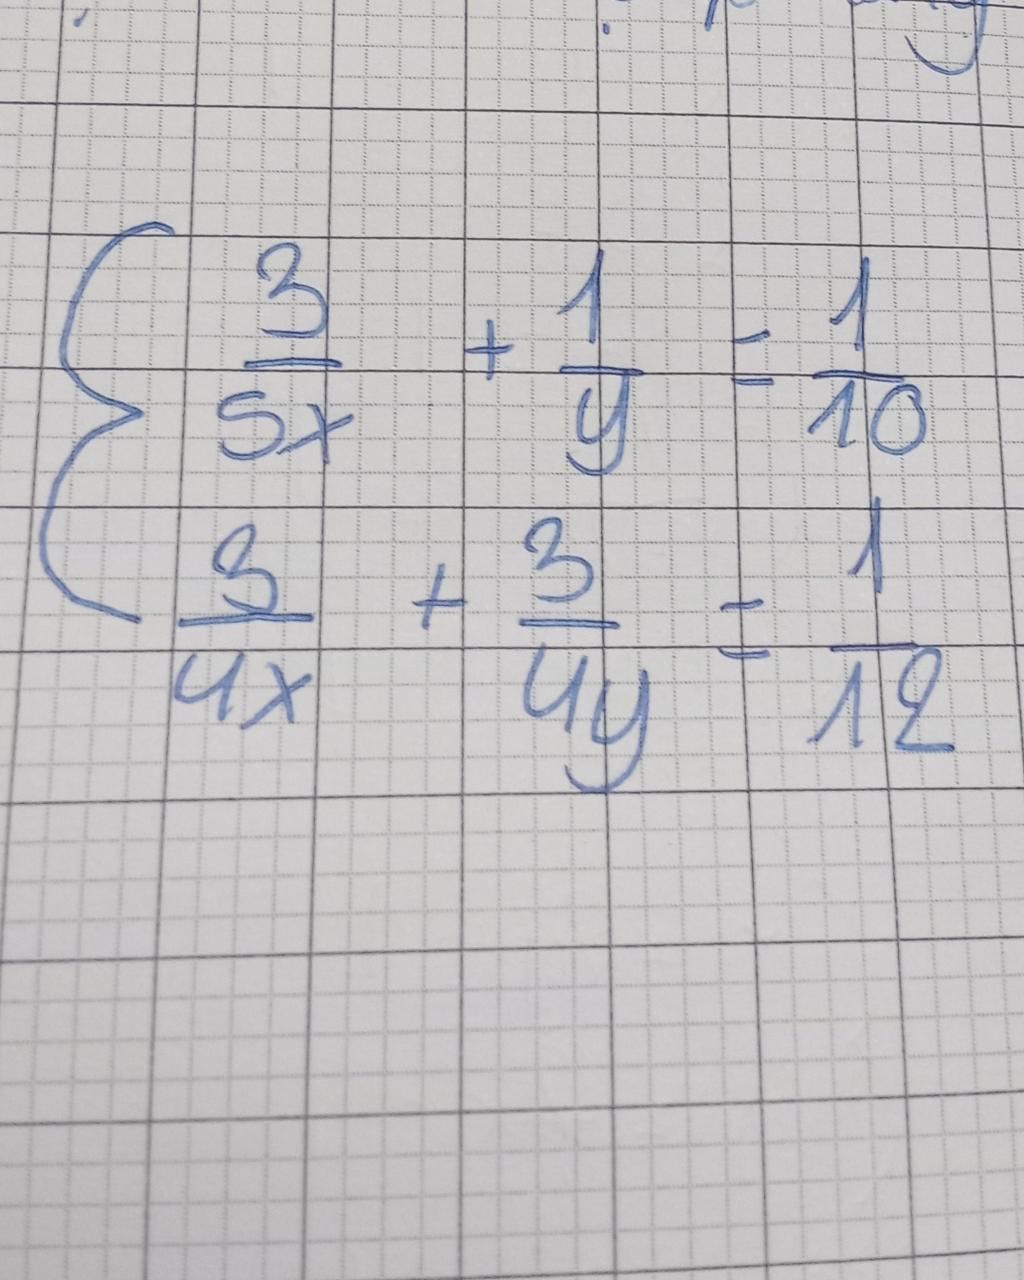 3/5x + 1/y = 1/10
3/4x + 3/4y = 1/12